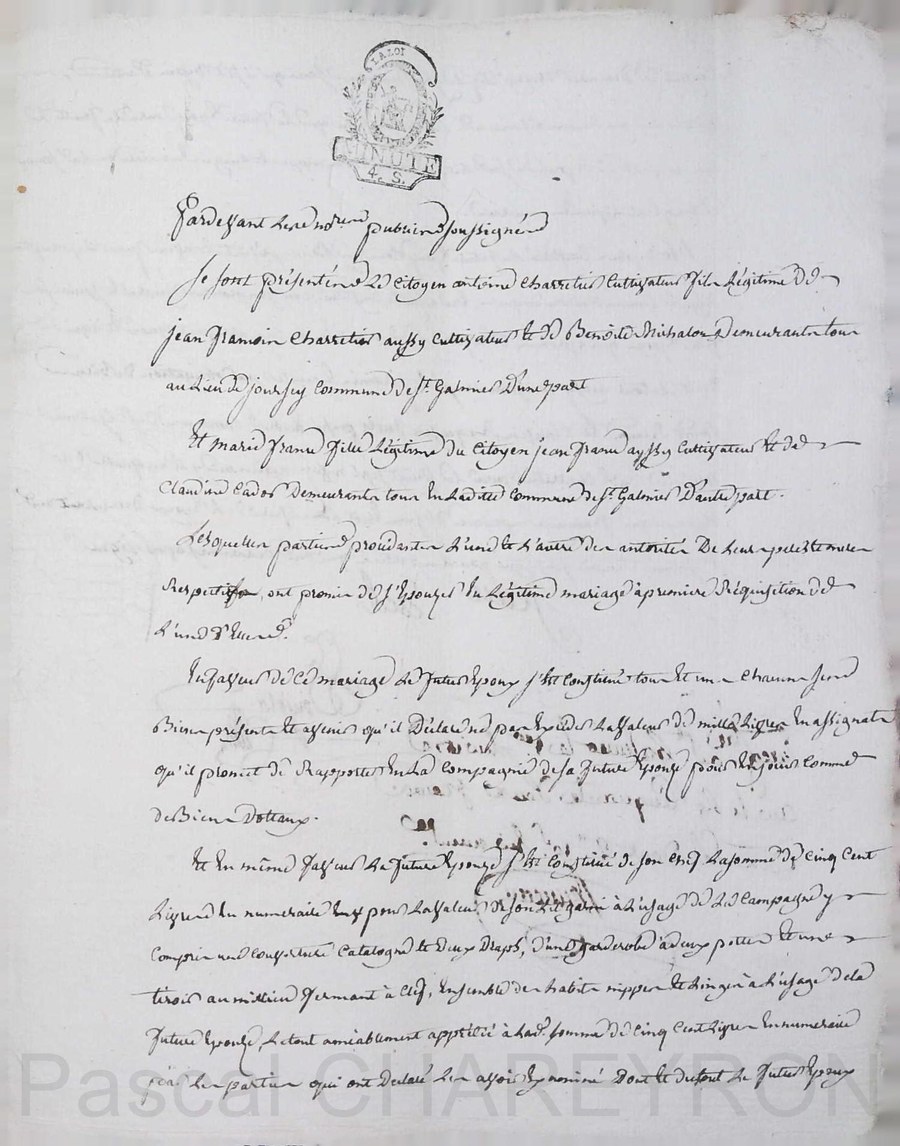 LA LOI
MINUTE
4. S.
Pardevant Le No.re public soussigné
Se sont présentés Le Citoyen antoine Charretier Cultivateur fils Légitime de
jean francois Charretier aussy Cultivateur et de Benoite Michalon Demeurants tous
au Lieu de joursey Commune de St. Galmier D'une part
Et marie france fille Légitime du Citoyen jean france aussy Cultivateur et de
Claudine Demeurants tous en Laditte Commune de St. Galmier D'autre part.
Lesquelles parties procédantes L'une et L'autre des autorités De Leurs peres et meres
Respectifs, ont promis de s'Epouzer En Légitime mariage à premiere Réquisition de
L'une D'Elles.
En faveur de Ce mariage Le futur Epoux s'Est Constitué tous et uns Chacuns ses
Biens présents et avenir qu'il Déclare ne pas Exceder La valeur de mille Livres En assignats
qu'il promet de Rapporter En La Compagnie de sa future Epouze pour En jouir Comme
de Biens Dottaux.
Et En même faveur La future Epouze s'Est Constitué de son Chef La somme de Cinq Cent
Livres En numeraire pour La valeur de son Lit garni à L'usage de La Campagne y
Compris une Couverture Catalogne et Deux Draps, d'une garderobe à deux portes et une
tirois au millieu fermant à Clef, Ensemble des habits nippes et Linges à L'usage de La
future Epouze, Le tout amiablement apprécié à La d. somme de Cinq Cent Livres En numeraire
par Les parties qui ont Déclaré Les avoir Examiné Dont et du tout Le futur Epoux
Pascal CHAREYRON